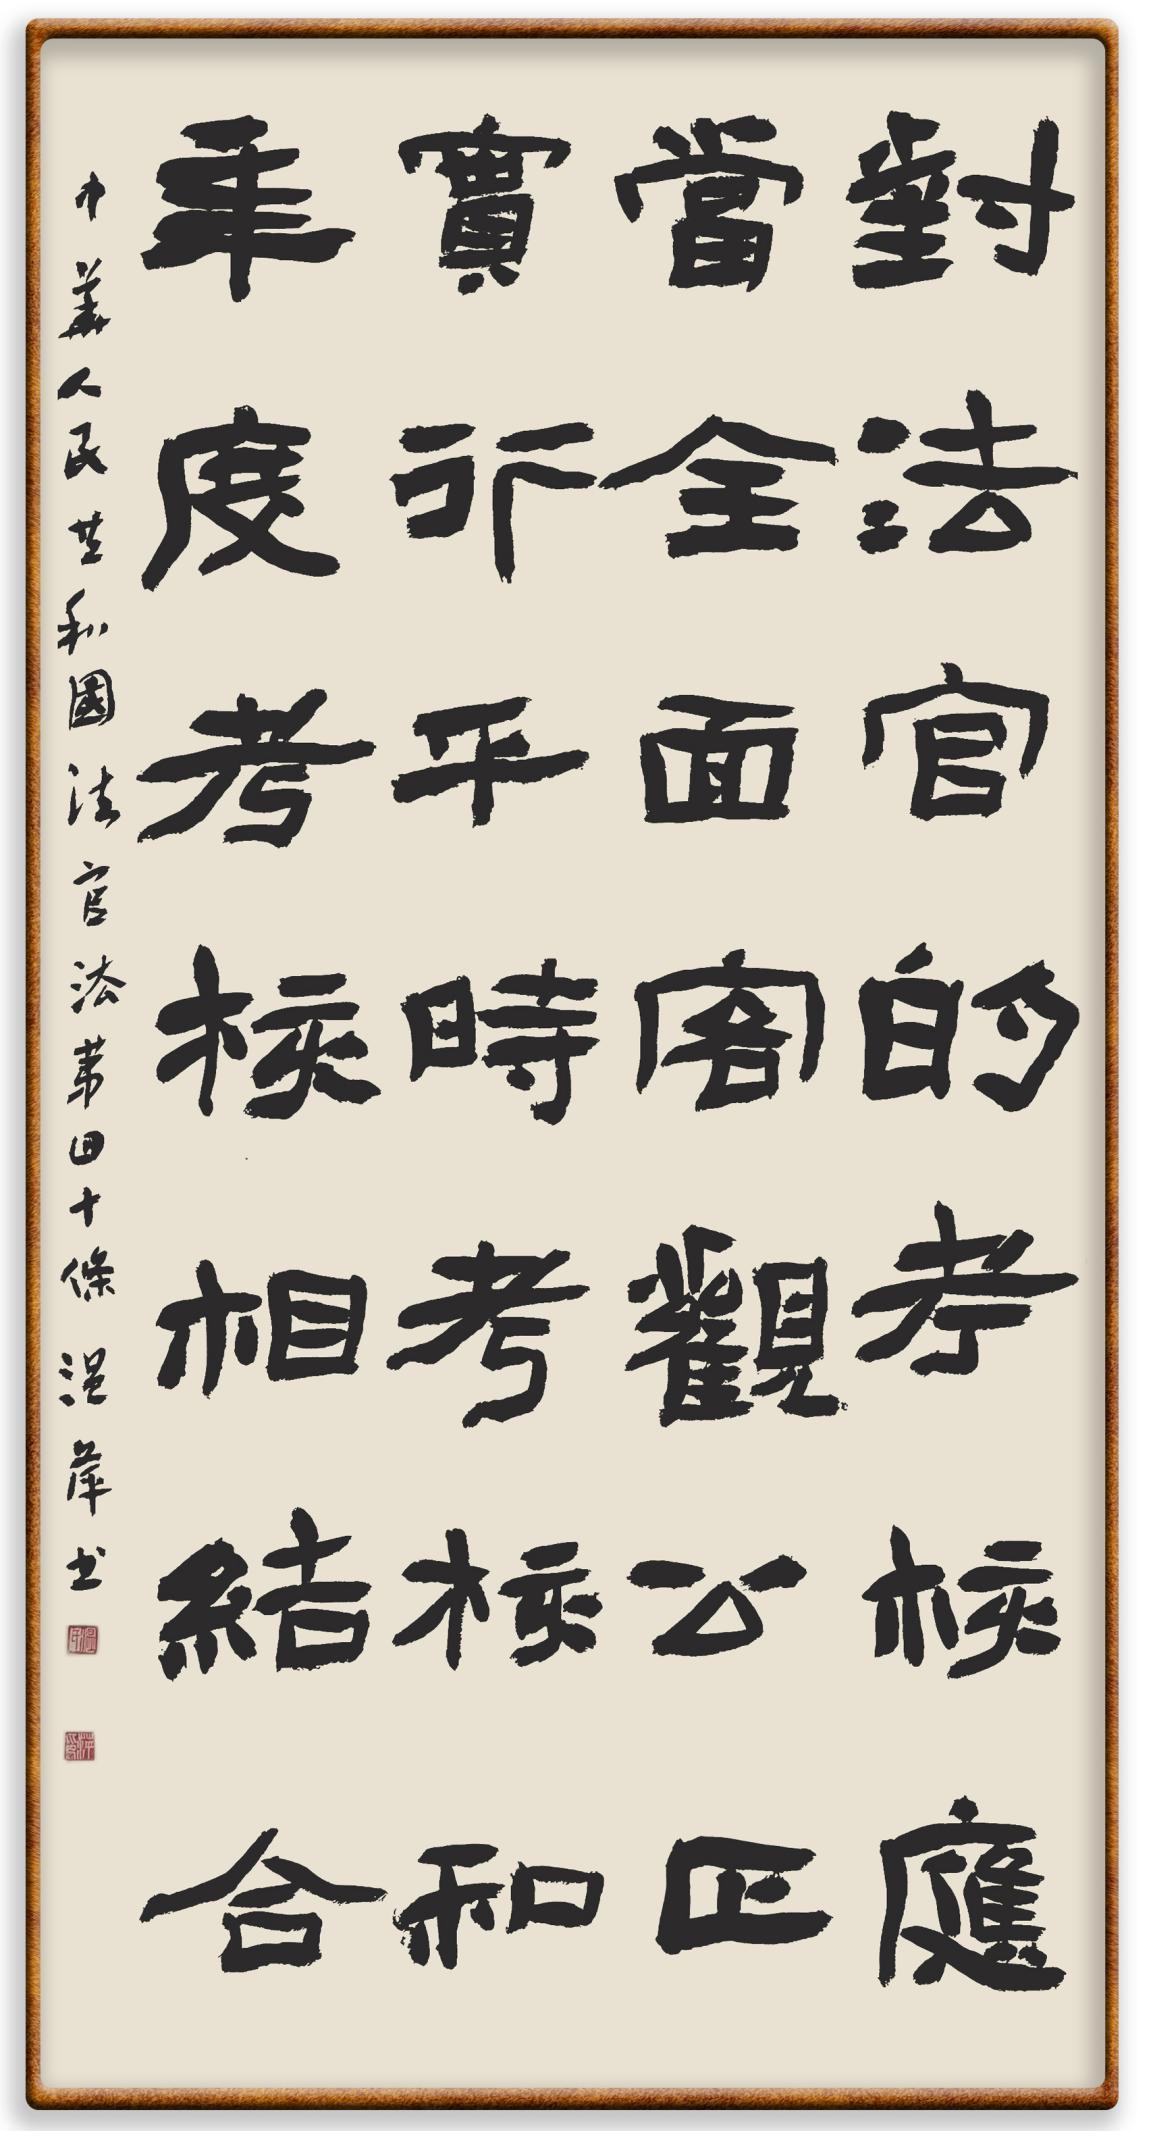 對法官的考核應
當全面客觀公正
實行平時考核和
年度考核相結合
中華人民共和國法官法第四十條 温 书